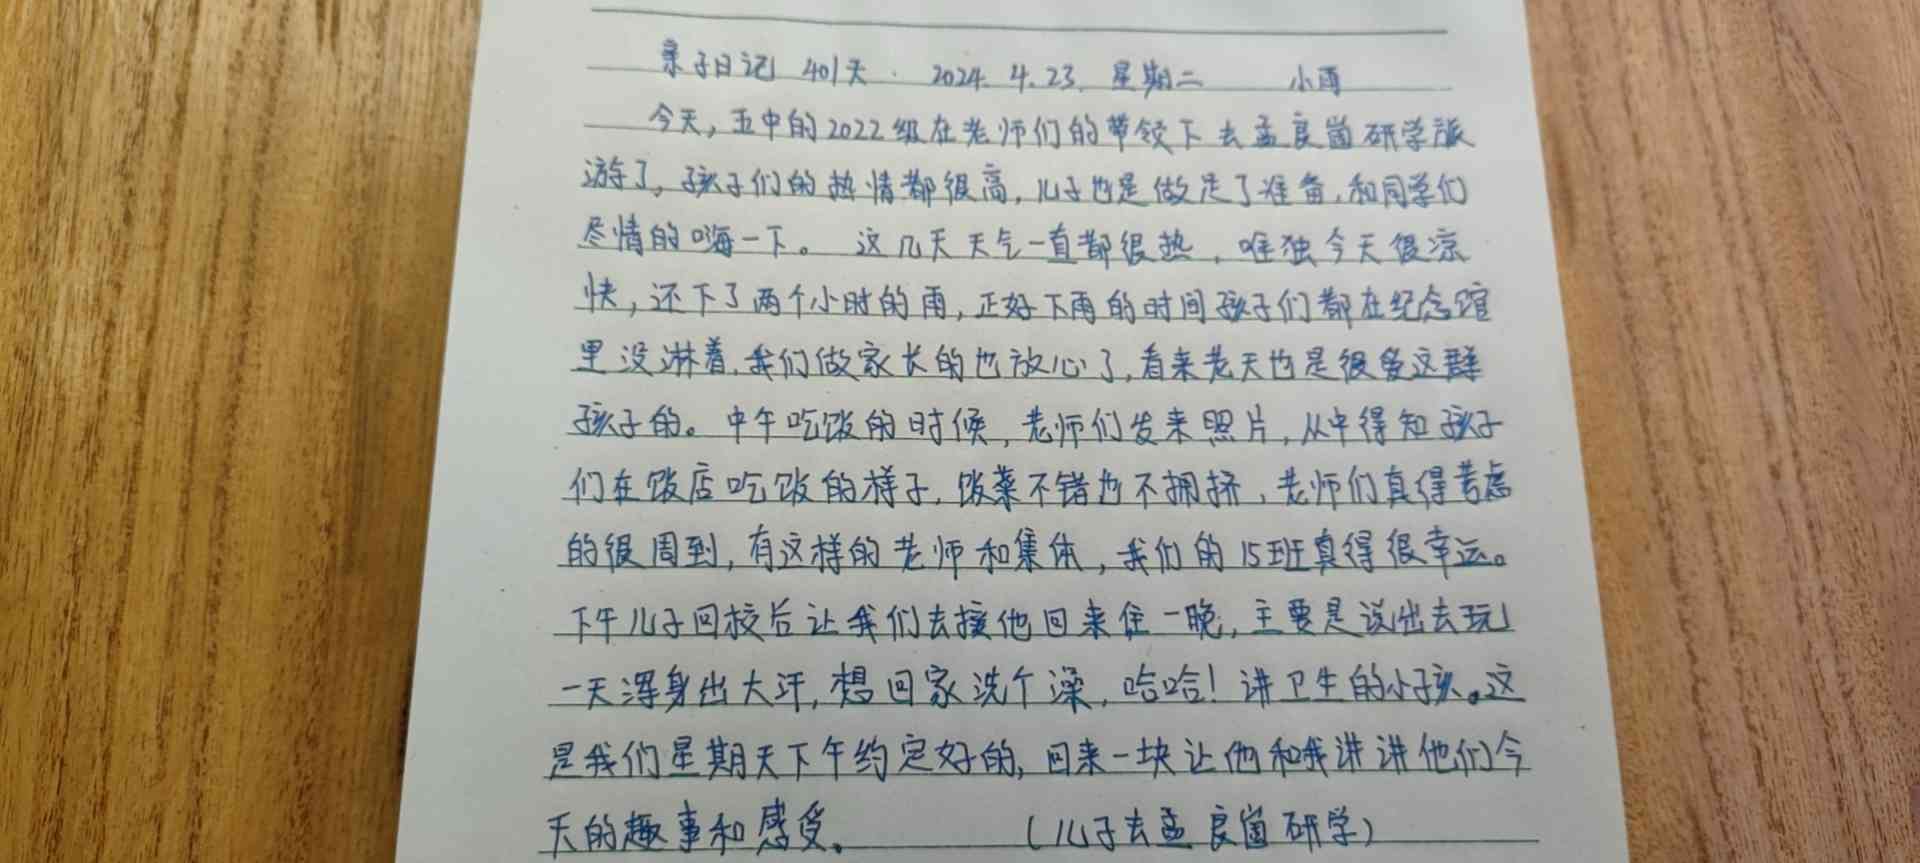 亲子日记 401天. 2024. 4. 23. 星期二 小雨
今天,五中的2022级在老师们的带领下去孟良崮研学旅
游了。孩子们的热情都很高,儿子也是做足了准备,和同学们
尽情的嗨一下。这几天天气一直都很热,唯独今天很凉
快,还下了两个小时的雨,正好下雨的时间孩子们都在纪念馆
里没淋着,我们做家长的也放心了,看来老天也是很爱这群
孩子的。中午吃饭的时候,老师们发来照片,从中得知孩子
们在饭店吃饭的样子,饭菜不错也不拥挤,老师们真得考虑
的很周到,有这样的老师和集体,我们的15班真得很幸运。
下午儿子回校后让我们去接他回来住一晚,主要是说出去玩
一天浑身出大汗,想回家洗个澡,哈哈!讲卫生的小孩。这
是我们星期天下午约定好的,回来一块让他和我讲讲他们今
天的趣事和感受。 (儿子去孟良崮研学)